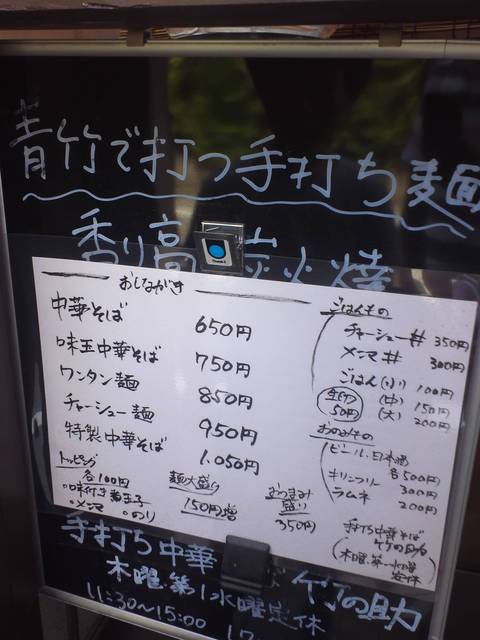 青竹で打つ手打ち麺
香り高 炭火焼
おしながき
中華そば 650円
味玉中華そば 750円
ワンタン麺 850円
チャーシュー麺 950円
特製中華そば 1.050円
トッピング
各100円
味付き玉子
メンマ のり
麺大盛り
150円増
おつまみ
盛り
350円
ごはんもの
チャーシュー丼 350円
メンマ丼 300円
ごはん (小) 100円
(中) 150円
(大) 200円
50円
おのみもの
ビール・日本酒
各500円
キリンフリー 300円
ラムネ 200円
手打ち中華そば
竹の助
木曜・第一水曜
定休
手打ち中華 竹の助
木曜・第1水曜定休
11:30〜15:00 17